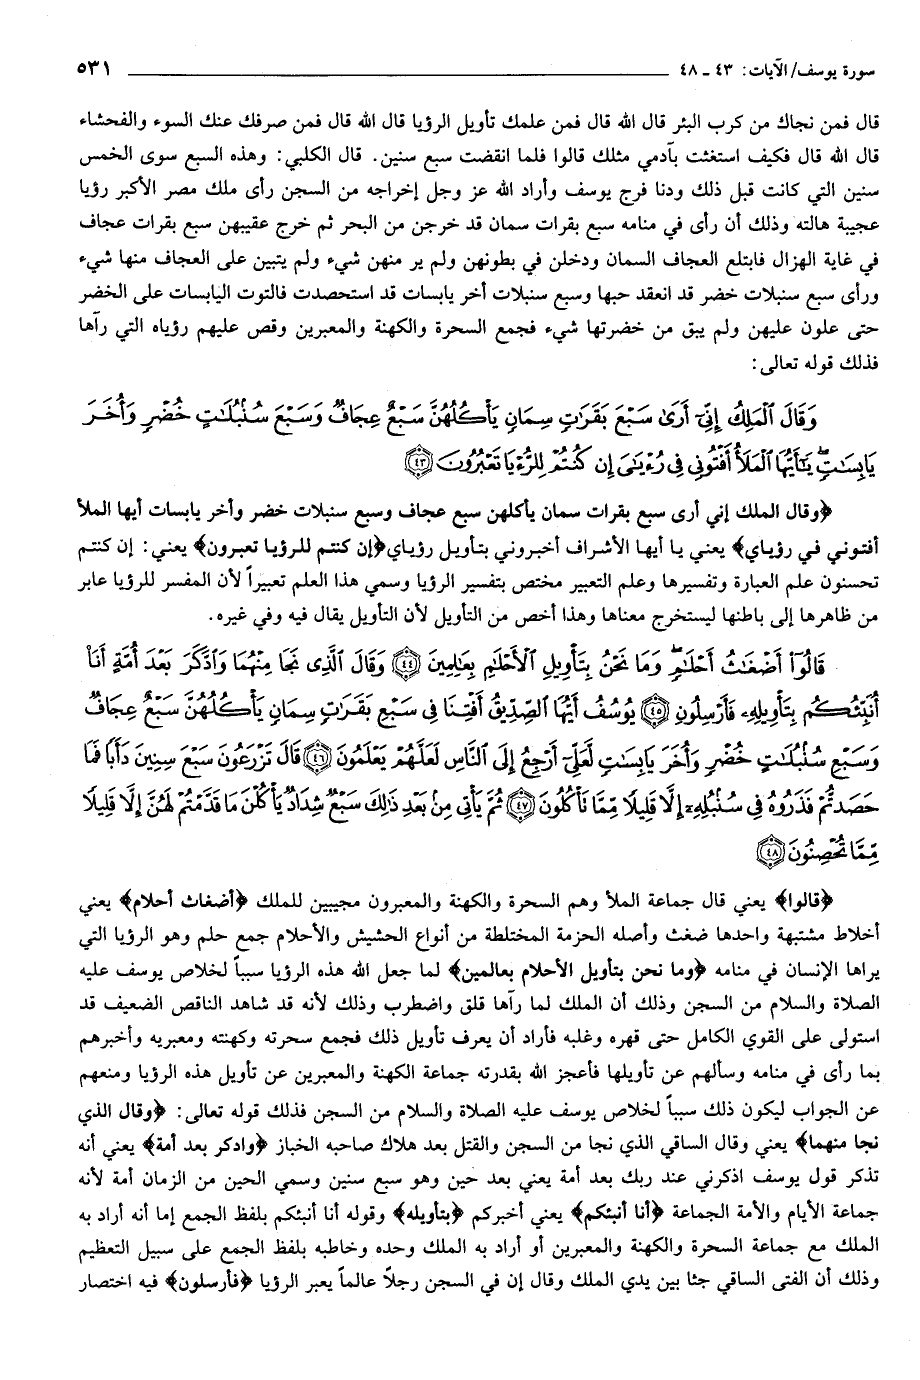 سورة يوسف/ الآيات: ٤٣ ـ ٤٨ ٥٣١
قال فمن نجاك من كرب البئر قال الله قال فمن علمك تأويل الرؤيا قال الله قال فمن صرفك عنك السوء والفحشاء
قال الله قال فكيف استغثت بآدمي مثلك قالوا فلما انقضت سبع سنين. قال الكلبي: وهذه السبع سوى الخمس
سنين التي كانت قبل ذلك ودنا فرج يوسف وأراد الله عز وجل إخراجه من السجن رأى ملك مصر الأكبر رؤيا
عجيبة هالته وذلك أن رأى في منامه سبع بقرات سمان قد خرجن من البحر ثم خرج عقيبهن سبع بقرات عجاف
في غاية الهزال فابتلع العجاف السمان ودخلن في بطونهن ولم ير منهن شيء ولم يتبين على العجاف منها شيء
ورأى سبع سنبلات خضر قد انعقد حبها وسبع سنبلات أخر يابسات قد استحصدت فالتوت اليابسات على الخضر
حتى علون عليهن ولم يبق من خضرتها شيء فجمع السحرة والكهنة والمعبرين وقص عليهم رؤياه التي رآها
فذلك قوله تعالى:
وَقَالَ ٱلْمَلِكُ إِنِّىٓ أَرَىٰ سَبْعَ بَقَرَٰتٍ سِمَانٍ يَأْكُلُهُنَّ سَبْعٌ عِجَافٌ وَسَبْعَ سُنۢبُلَٰتٍ خُضْرٍ وَأُخَرَ
يَابِسَٰتٍ ۖ يَٰٓأَيُّهَا ٱلْمَلَأُ أَفْتُونِى فِى رُءْيَٰىَ إِن كُنتُمْ لِلرُّءْيَا تَعْبُرُونَ ﴿٤٣﴾
﴿وقال الملك إني أرى سبع بقرات سمان يأكلهن سبع عجاف وسبع سنبلات خضر وأخر يابسات أيها الملأ
أفتوني في رؤياي﴾ يعني يا أيها الأشراف أخبروني بتأويل رؤياي ﴿إن كنتم للرؤيا تعبرون﴾ يعني: إن كنتم
تحسنون علم العبارة وتفسيرها وعلم التعبير مختص بتفسير الرؤيا وسمي هذا العلم تعبيراً لأن المفسر للرؤيا عابر
من ظاهرها إلى باطنها ليستخرج معناها وهذا أخص من التأويل لأن التأويل يقال فيه وفي غيره.
قَالُوٓا۟ أَضْغَٰثُ أَحْلَٰمٍ ۖ وَمَا نَحْنُ بِتَأْوِيلِ ٱلْأَحْلَٰمِ بِعَٰلِمِينَ ﴿٤٤﴾ وَقَالَ ٱلَّذِى نَجَا مِنْهُمَا وَٱدَّكَرَ بَعْدَ أُمَّةٍ أَنَا۠
أُنَبِّئُكُم بِتَأْوِيلِهِۦ فَأَرْسِلُونِ ﴿٤٥﴾ يُوسُفُ أَيُّهَا ٱلصِّدِّيقُ أَفْتِنَا فِى سَبْعِ بَقَرَٰتٍ سِمَانٍ يَأْكُلُهُنَّ سَبْعٌ عِجَافٌ
وَسَبْعِ سُنۢبُلَٰتٍ خُضْرٍ وَأُخَرَ يَابِسَٰتٍ لَّعَلِّىٓ أَرْجِعُ إِلَى ٱلنَّاسِ لَعَلَّهُمْ يَعْلَمُونَ ﴿٤٦﴾ قَالَ تَزْرَعُونَ سَبْعَ سِنِينَ دَأَبًا فَمَا
حَصَدتُّمْ فَذَرُوهُ فِى سُنۢبُلِهِۦٓ إِلَّا قَلِيلًا مِّمَّا تَأْكُلُونَ ﴿٤٧﴾ ثُمَّ يَأْتِى مِنۢ بَعْدِ ذَٰلِكَ سَبْعٌ شِدَادٌ يَأْكُلْنَ مَا قَدَّمْتُمْ لَهُنَّ إِلَّا قَلِيلًا
مِّمَّا تُحْصِنُونَ ﴿٤٨﴾
﴿قالوا﴾ يعني قال جماعة الملأ وهم السحرة والكهنة والمعبرون مجيبين للملك ﴿أضغاث أحلام﴾ يعني
أخلاط مشتبهة واحدها ضغث وأصله الحزمة المختلطة من أنواع الحشيش والأحلام جمع حلم وهو الرؤيا التي
يراها الإنسان في منامه ﴿وما نحن بتأويل الأحلام بعالمين﴾ لما جعل الله هذه الرؤيا سبباً لخلاص يوسف عليه
الصلاة والسلام من السجن وذلك أن الملك لما رآها قلق واضطرب وذلك لأنه قد شاهد الناقص الضعيف قد
استولى على القوي الكامل حتى قهره وغلبه فأراد أن يعرف تأويل ذلك فجمع سحرته وكهنته ومعبريه وأخبرهم
بما رأى في منامه وسألهم عن تأويلها فأعجز الله بقدرته جماعة الكهنة والمعبرين عن تأويل هذه الرؤيا ومنعهم
عن الجواب ليكون ذلك سبباً لخلاص يوسف عليه الصلاة والسلام من السجن فذلك قوله تعالى: ﴿وقال الذي
نجا منهما﴾ يعني وقال الساقي الذي نجا من السجن والقتل بعد هلاك صاحبه الخباز ﴿وادكر بعد أمة﴾ يعني أنه
تذكر قول يوسف اذكرني عند ربك بعد أمة يعني بعد حين وهو سبع سنين وسمي الحين من الزمان أمة لأنه
جماعة الأيام والأمة الجماعة ﴿أنا أنبئكم﴾ يعني أخبركم ﴿بتأويله﴾ وقوله أنا أنبئكم بلفظ الجمع إما أنه أراد به
الملك مع جماعة السحرة والكهنة والمعبرين أو أراد به الملك وحده وخاطبه بلفظ الجمع على سبيل التعظيم
وذلك أن الفتى الساقي جثا بين يدي الملك وقال إن في السجن رجلاً عالماً يعبر الرؤيا ﴿فأرسلون﴾ فيه اختصار